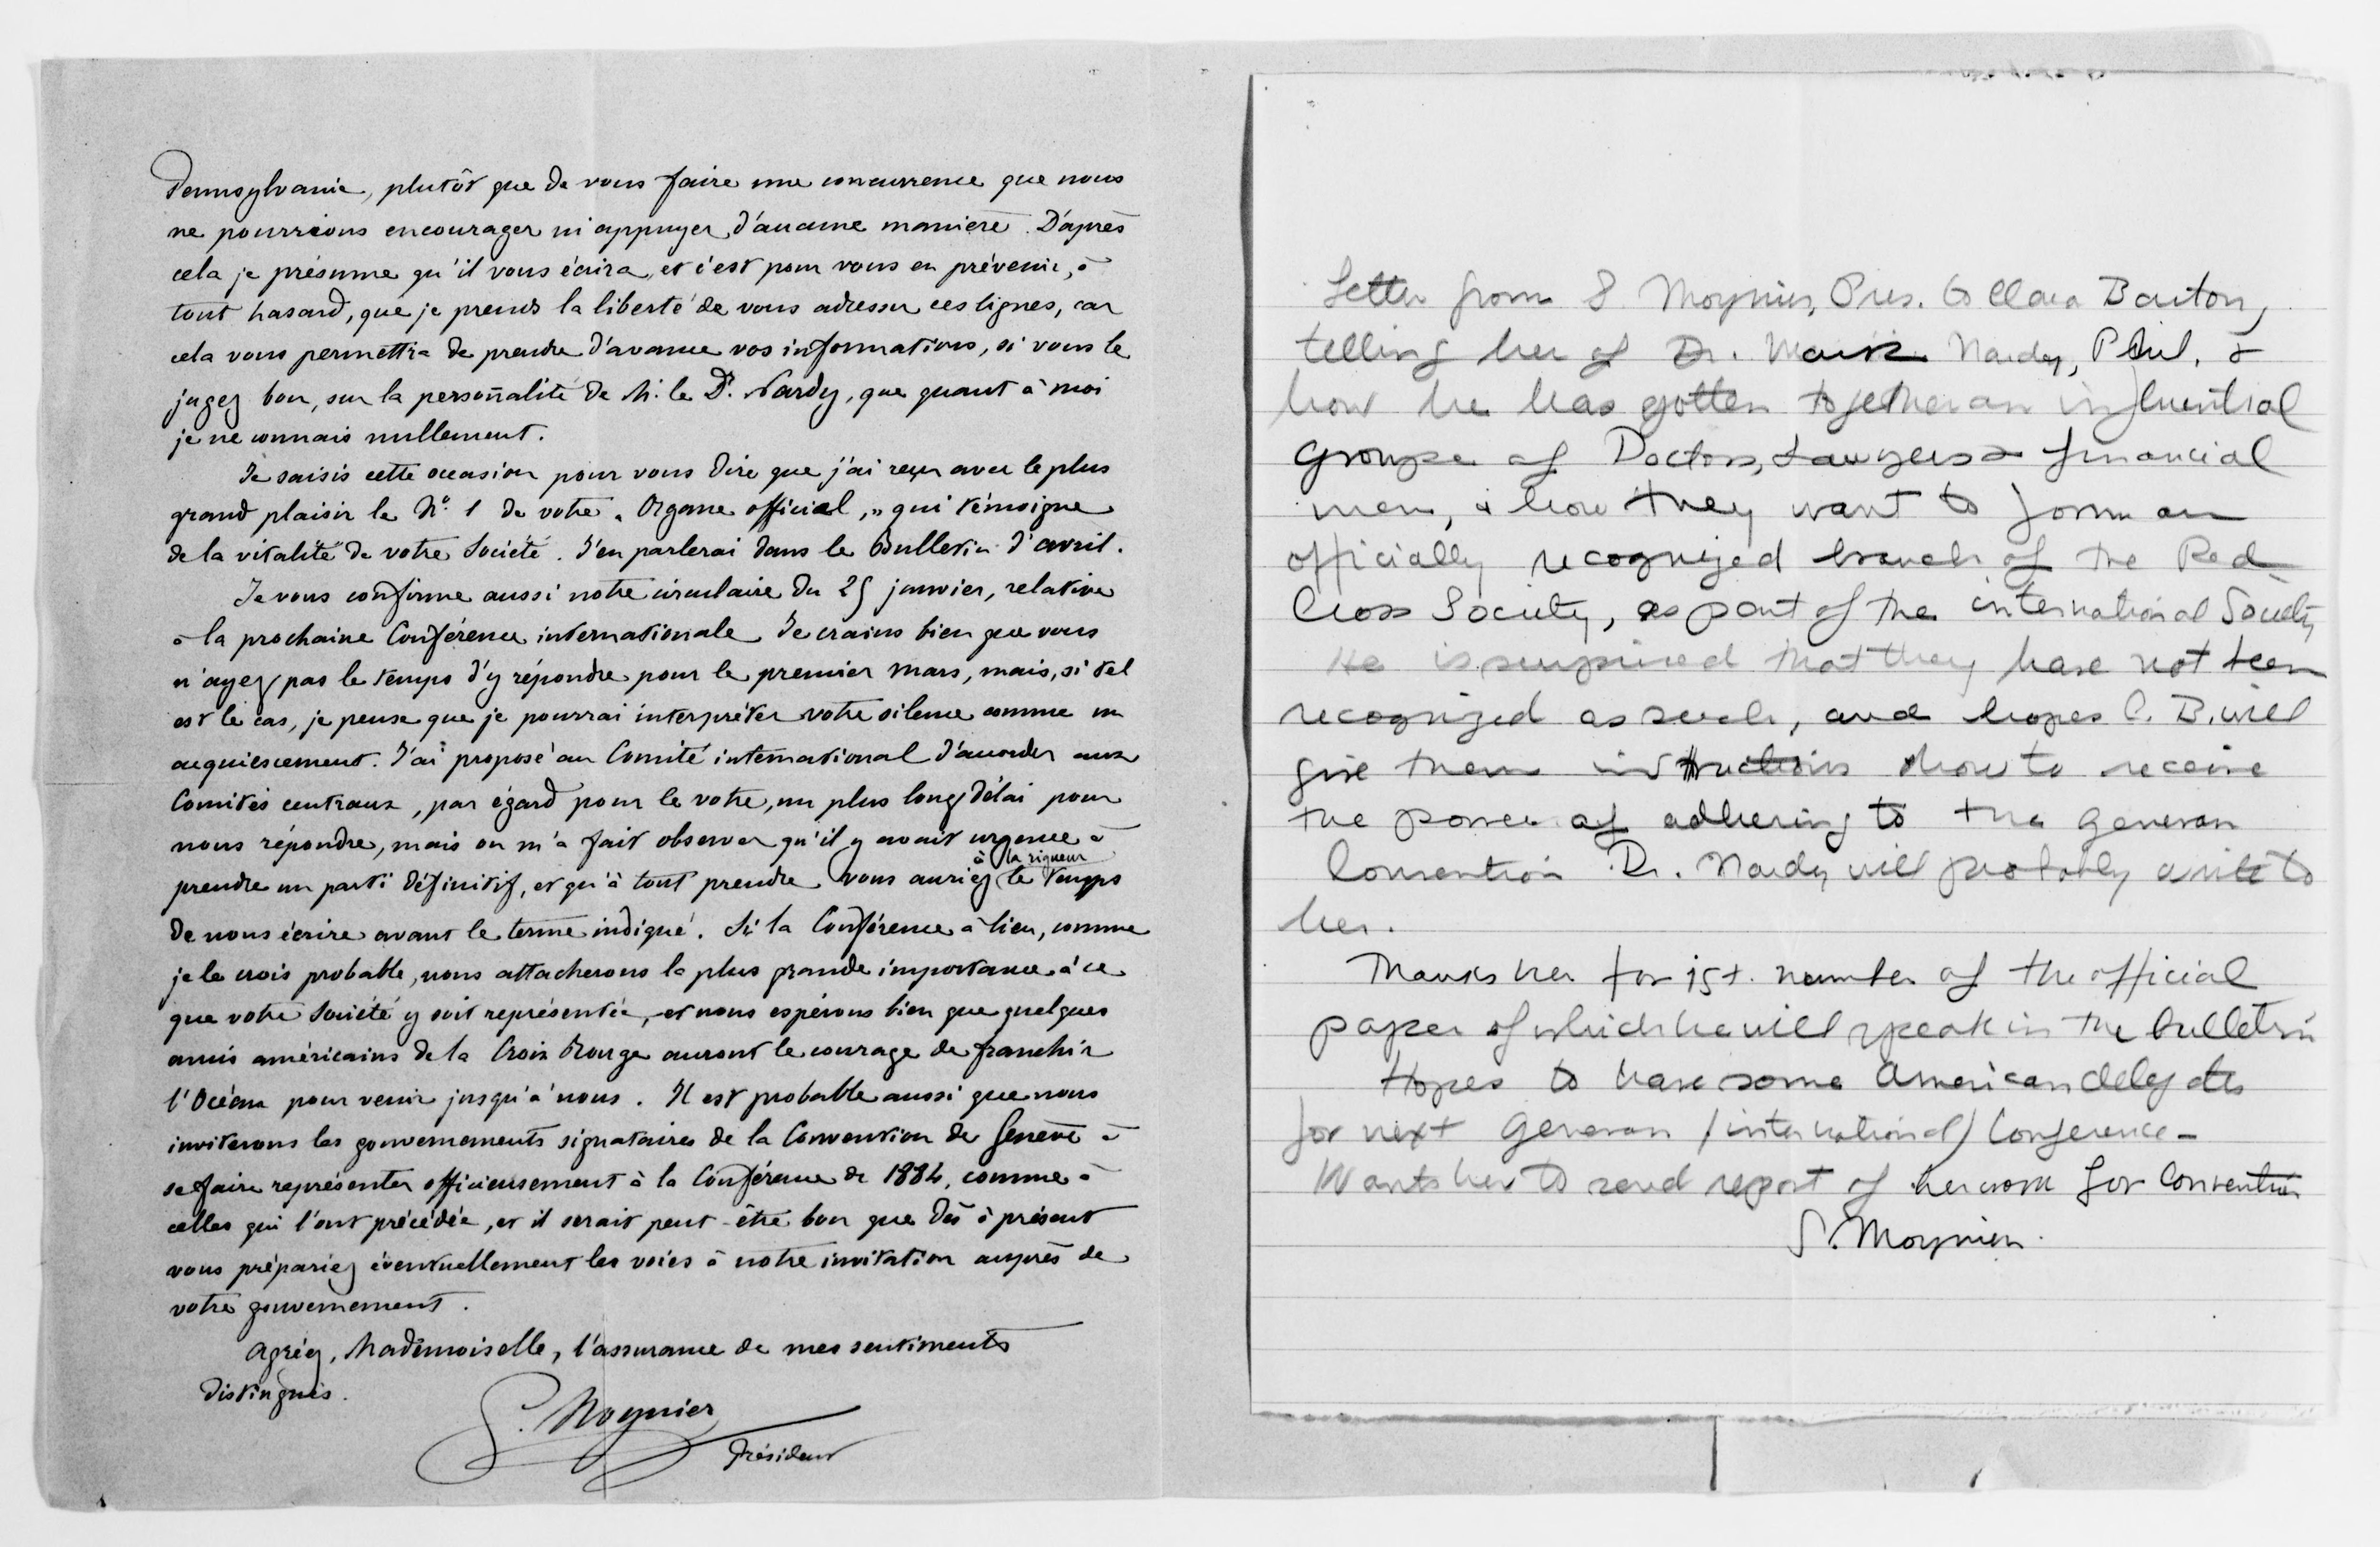 Pennsylvanie, plutôt que de vous faire une concurrence que nous
ne pourrions encourager ni appuyer d'aucune manière. D'après
cela je présume qu'il vous écrira, et c'est pour vous en prévenir, à
tout hasard, que je prends la liberté de vous adresser ces lignes, car
cela vous permettra de prendre d'avance vos informations, si vous le
jugez bon, sur la personnalité de M. le Dr. Nardy, que quant à moi
je ne connais nullement.
Je saisis cette occasion pour vous dire que j'ai reçu avec le plus
grand plaisir le No. 1 de votre „Organe official," qui témoigne
de la vitalité de votre Société. J'en parlerai dans le Bulletin d'avril.
Je vous confirme aussi notre circulaire du 25 janvier, relative
à la prochaine Conférence internationale. Je crains bien que vous
n'ayez pas le temps d'y répondre pour le premier mars, mais, si tel
est le cas, je pense que je pourrai interpréter votre silence comme un
acquiescement. J'ai proposé au Comité international d'accorder aux
Comités centraux, par égard pour le votre, un plus long délai pour
nous répondre, mais on m'a fait observer qu'il y avait urgence à
prendre un parti définitif, et qu'à tout prendre vous auriez à la rigueur le temps
de nous écrire avant le terme indiqué. Si la Conférence a lieu, comme
je le crois probable, nous attacherons la plus grande importance à ce
que votre Société y soit représentée, et nous espérons bien que quelques
amis américains de la Croix Rouge auront le courage de franchir
l'Océan pour venir jusqu'à nous. Il est probable aussi que nous
inviterons les gouvernements signataires de la Convention de Genève à
se faire représenter officieusement à la Conférence de 1884, comme à
celles qui l'ont précédée, et il serait peut-être bon que dès à présent
vous prépariez éventuellement les voies à notre invitation auprès de
votre gouvernement.
Agréez, Mademoiselle, l'assurance de mes sentiments
distingués.
G. Moynier
Président
Letter from S. Moynier, Pres. to Clara Barton,
telling her of Dr. Mark Nardy, Phil. &
how he has gotten together an influential
groupe of Doctors, Lawyers & financial
men, & how they want to form an
officially recognized branch of the Red
Cross Society, as part of the international Society
He is surprised that they have not been
recognized as such, and hopes C. B. will
give them instructions how to receive
the power of adhering to the Genevan
Convention Dr. Nardy will probably write to
her.
Thanks her for 1st. number of the official
paper of which he will speak in the bulletin
Hopes to have some American delegates
for next Genevan (international) Conference -
Wants her to send report of her work for Convention
S. Moynier.